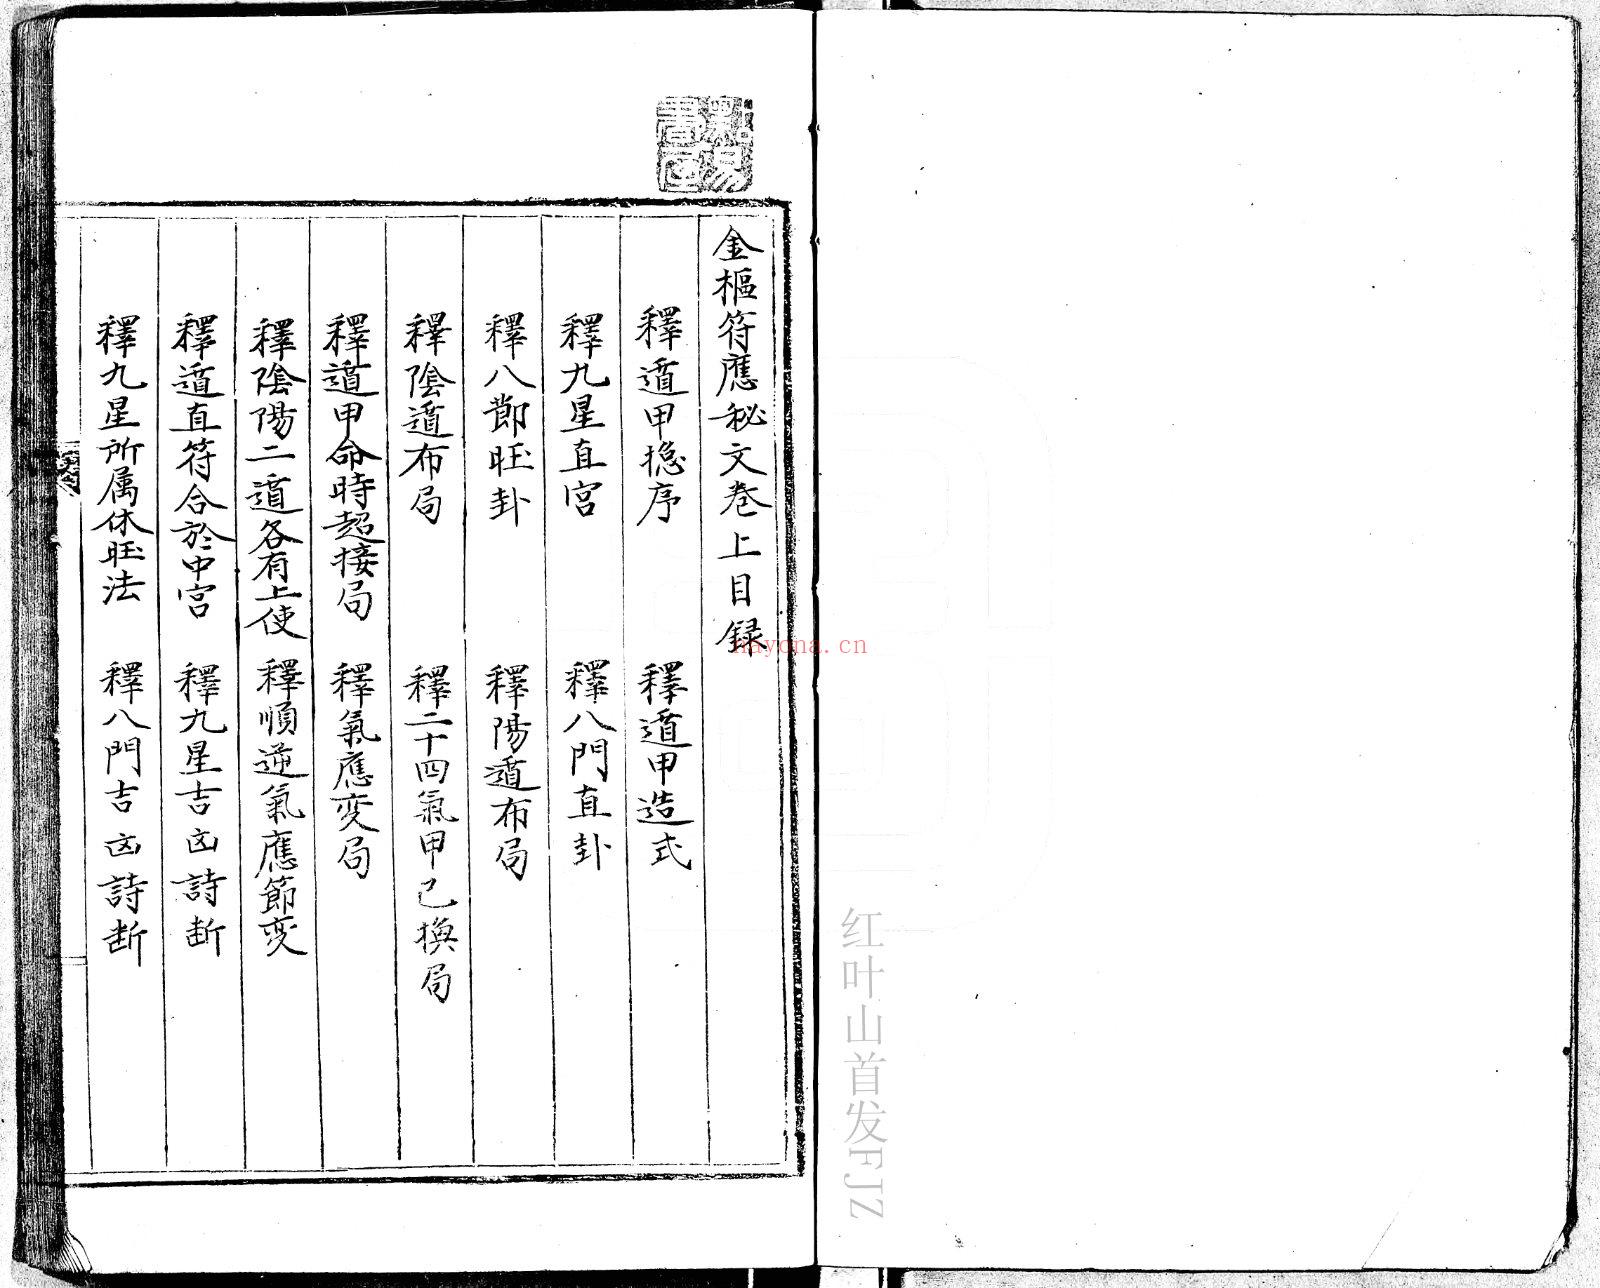 金樞符應秘文卷上目録
釋遁甲揔序　釋遁甲造式
釋九星直宮　釋八門直卦
釋八節旺卦　釋陽遁布局
釋陰遁布局　釋二十四氣甲己換局
釋遁甲命時超接局　釋氣應变局
釋陰陽二遁各有上使　釋順逆氣應節变
釋遁直符合於中宮　釋九星吉凶詩断
釋九星所属休旺法　釋八門吉凶詩断
nayona.cn
红叶山首发FJZ